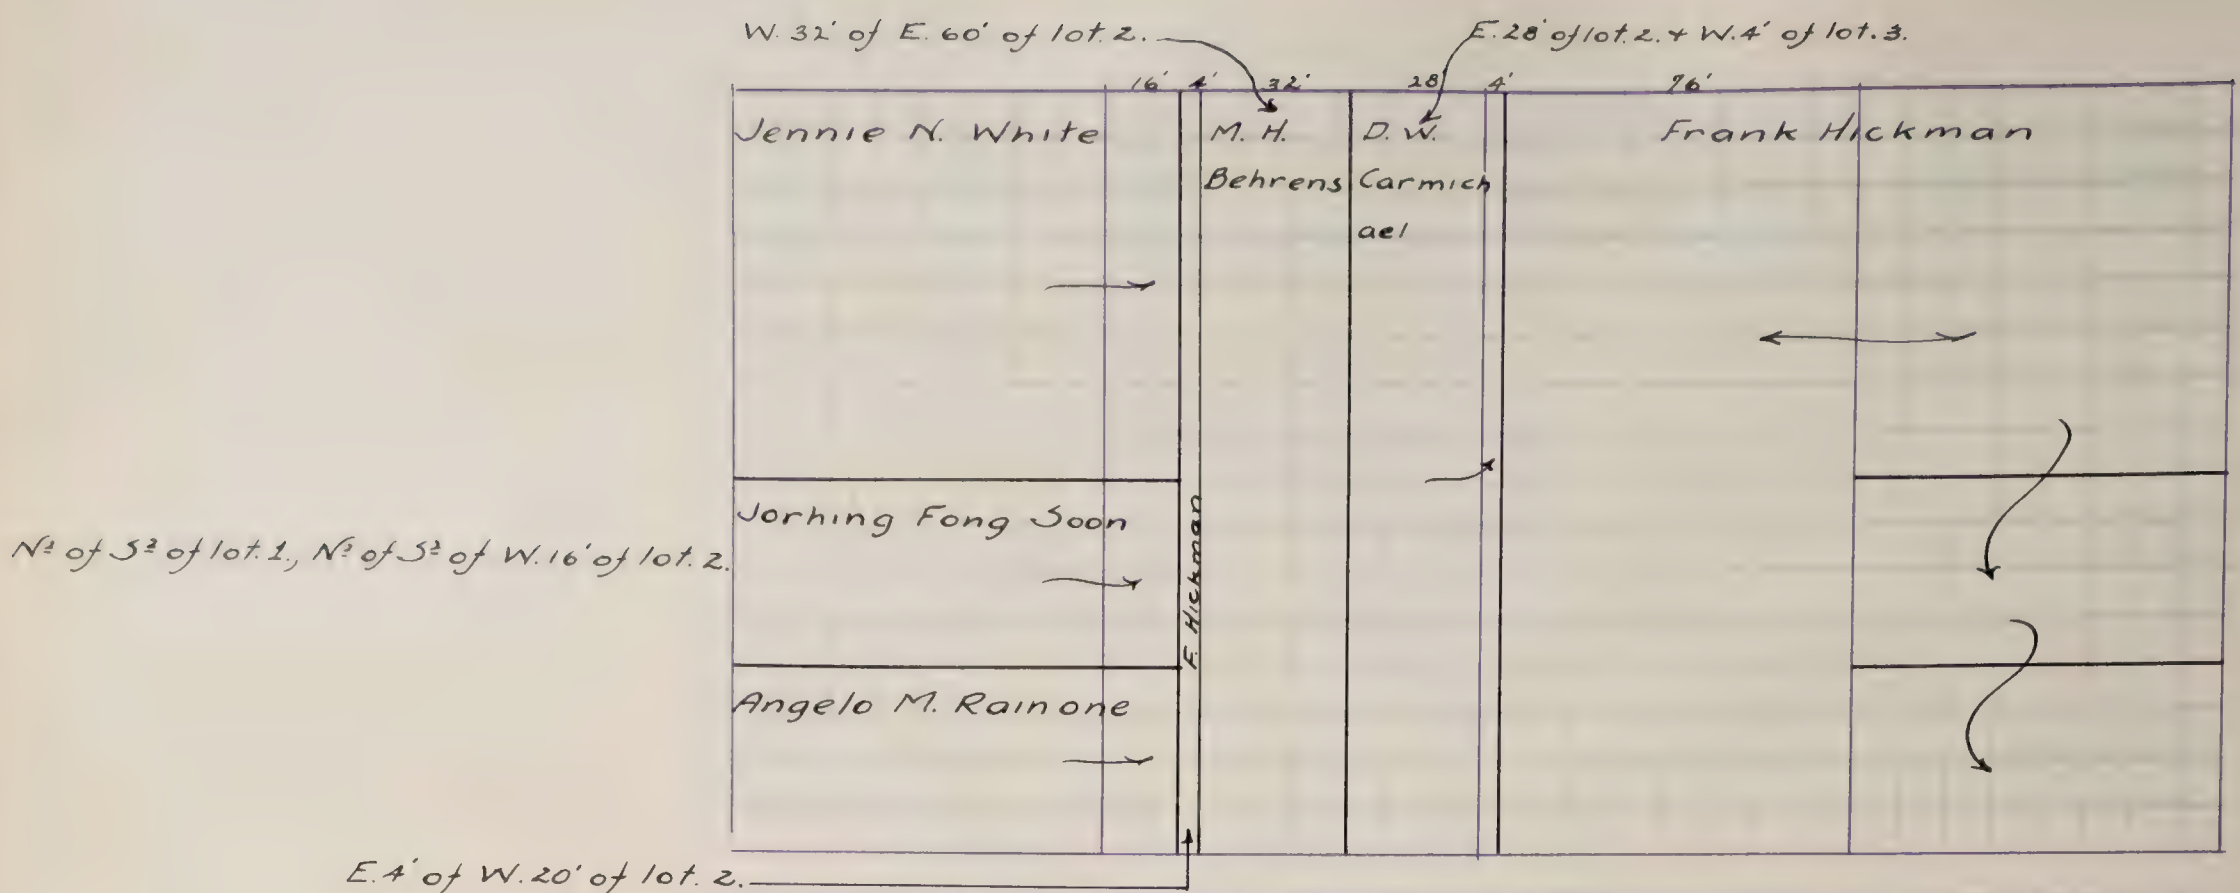 W. 32' of E. 60' of lot. 2.
E. 28' of lot. 2. + W. 4' of lot. 3.
16' 4' 32' 28' 4' 76'
Jennie N. White
M. H.
Behrens
D. W.
Carmich
ael
Frank Hickman
Jorhing Fong Soon
N½ of S½ of lot. 1., N½ of S½ of W. 16' of lot. 2.
F. Hickman
Angelo M. Rainone
E. 4' of W. 20' of lot. 2.